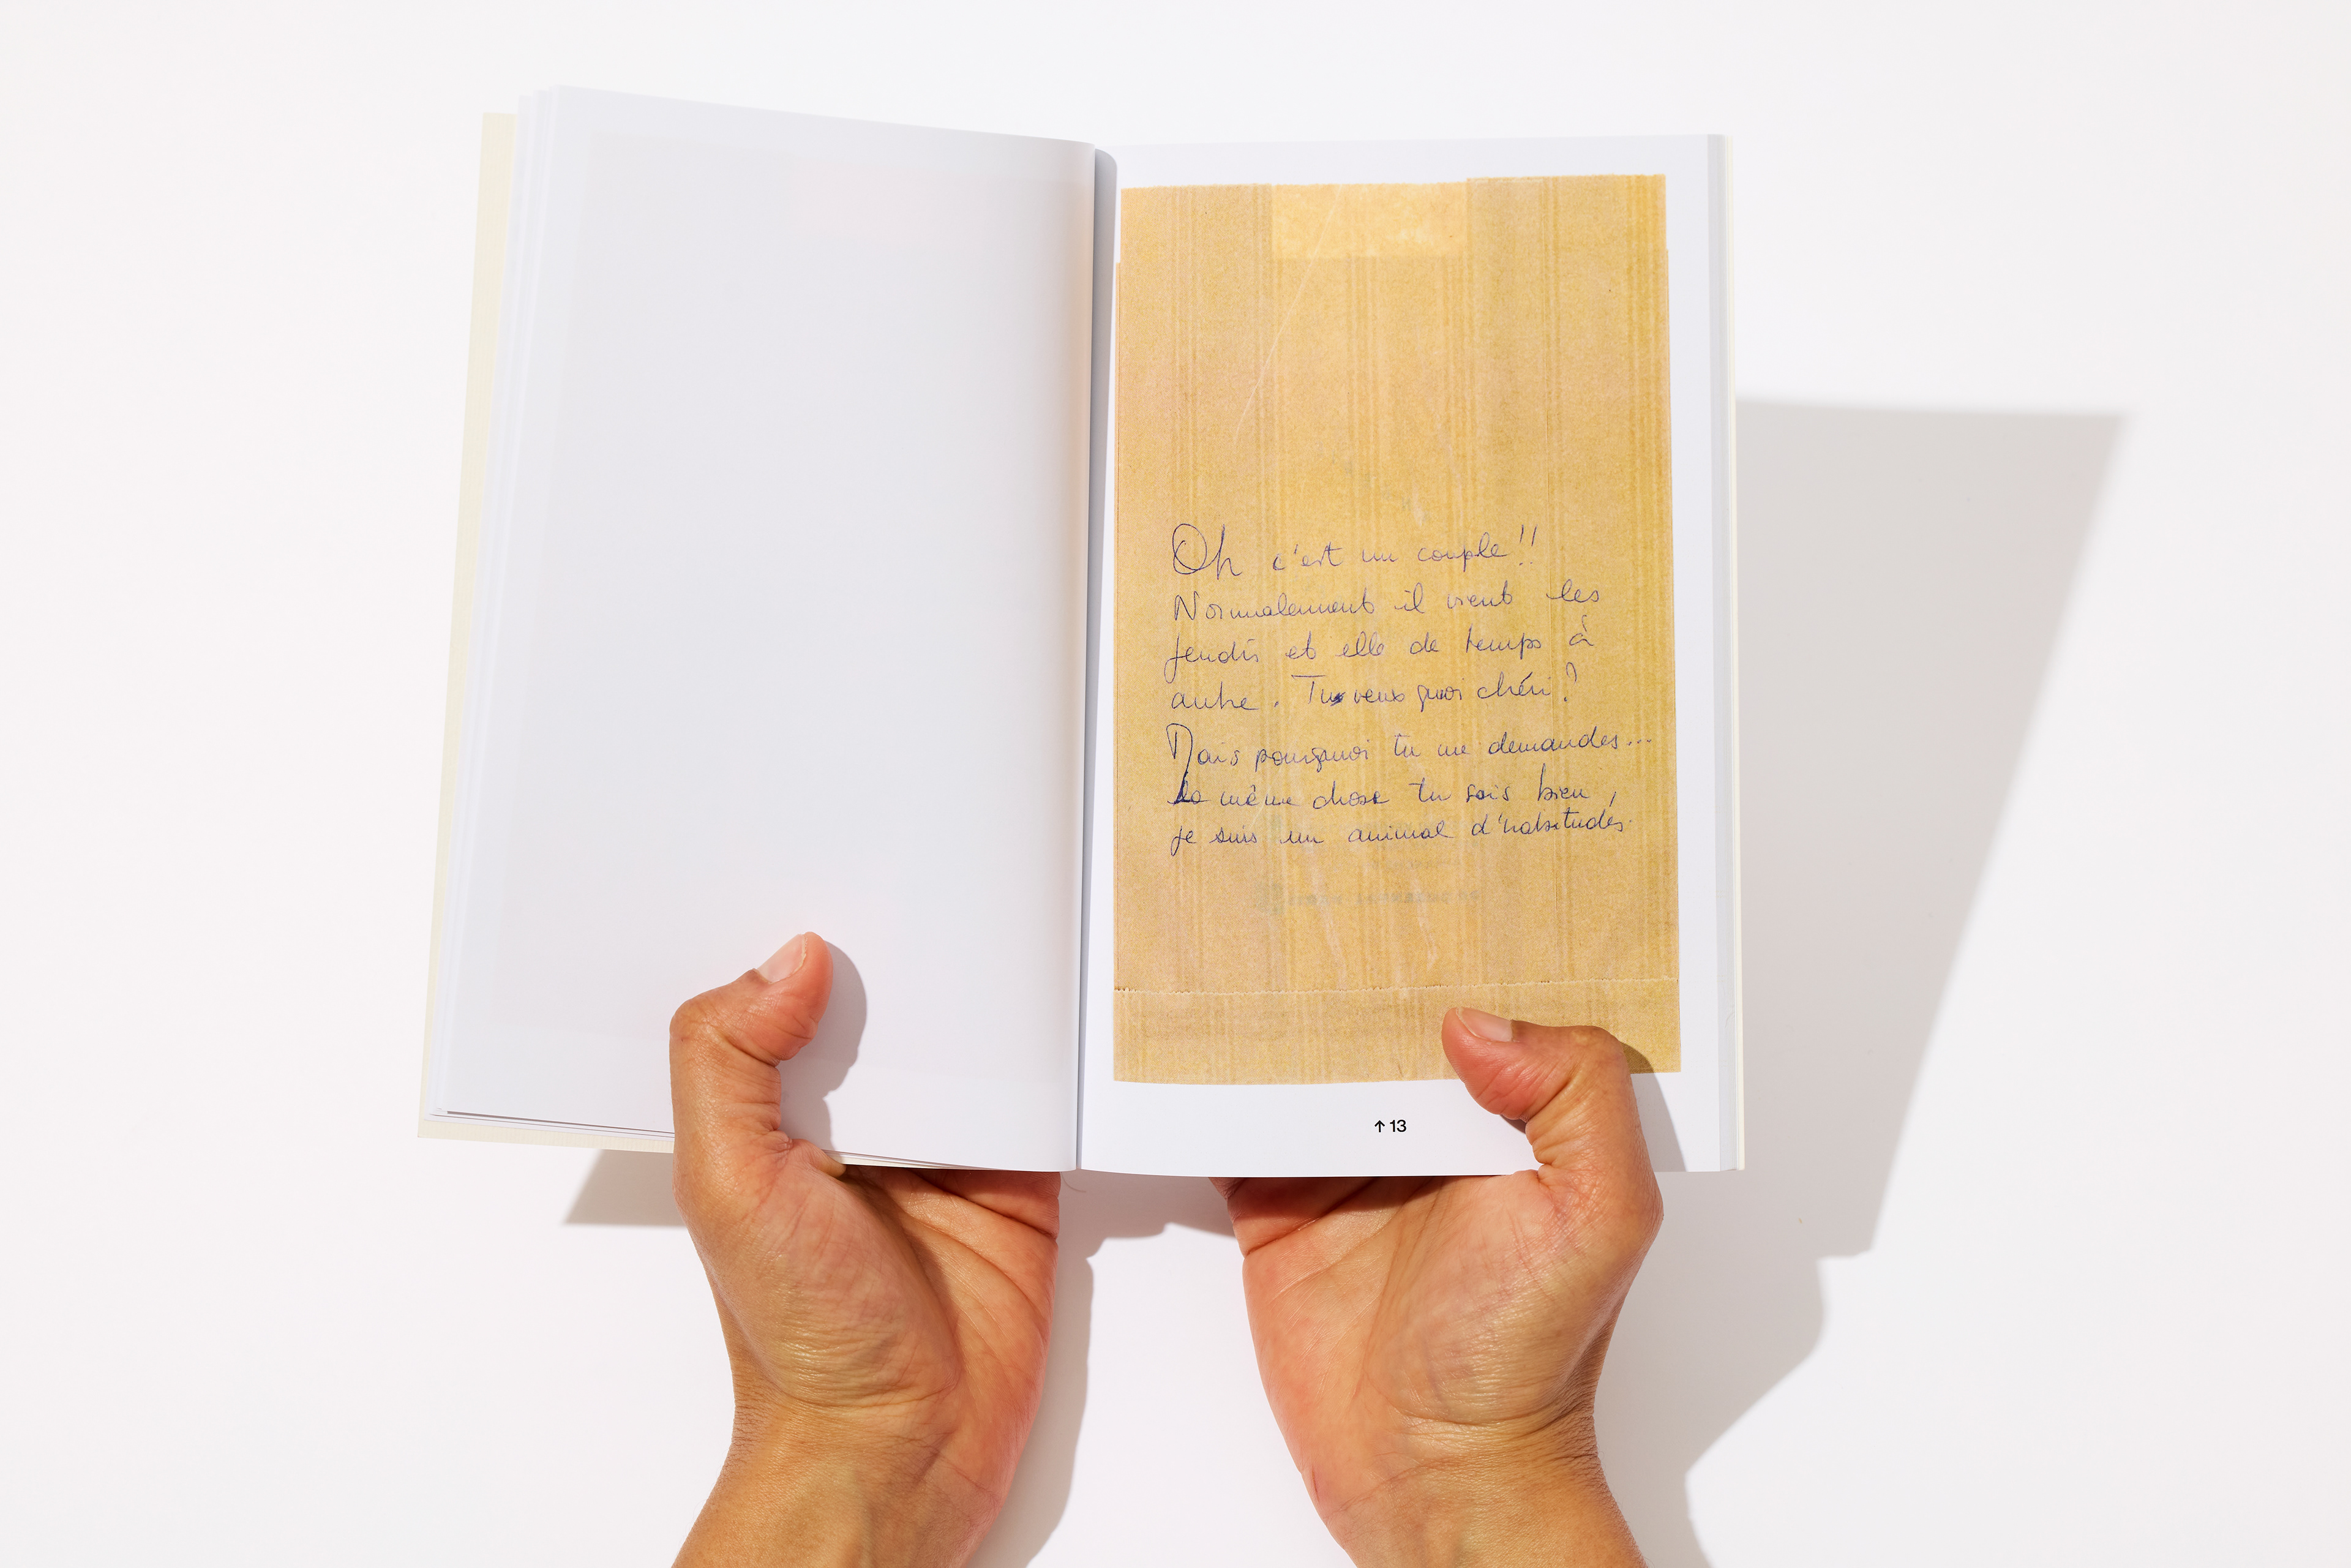 Oh c'est un couple!!
Normalement il vient les
jeudis et elle de temps à
autre. Tu veux quoi chéri?
Mais pourquoi tu me demandes...
La même chose tu sais bien,
je suis un animal d'habitudes.
↑ 13